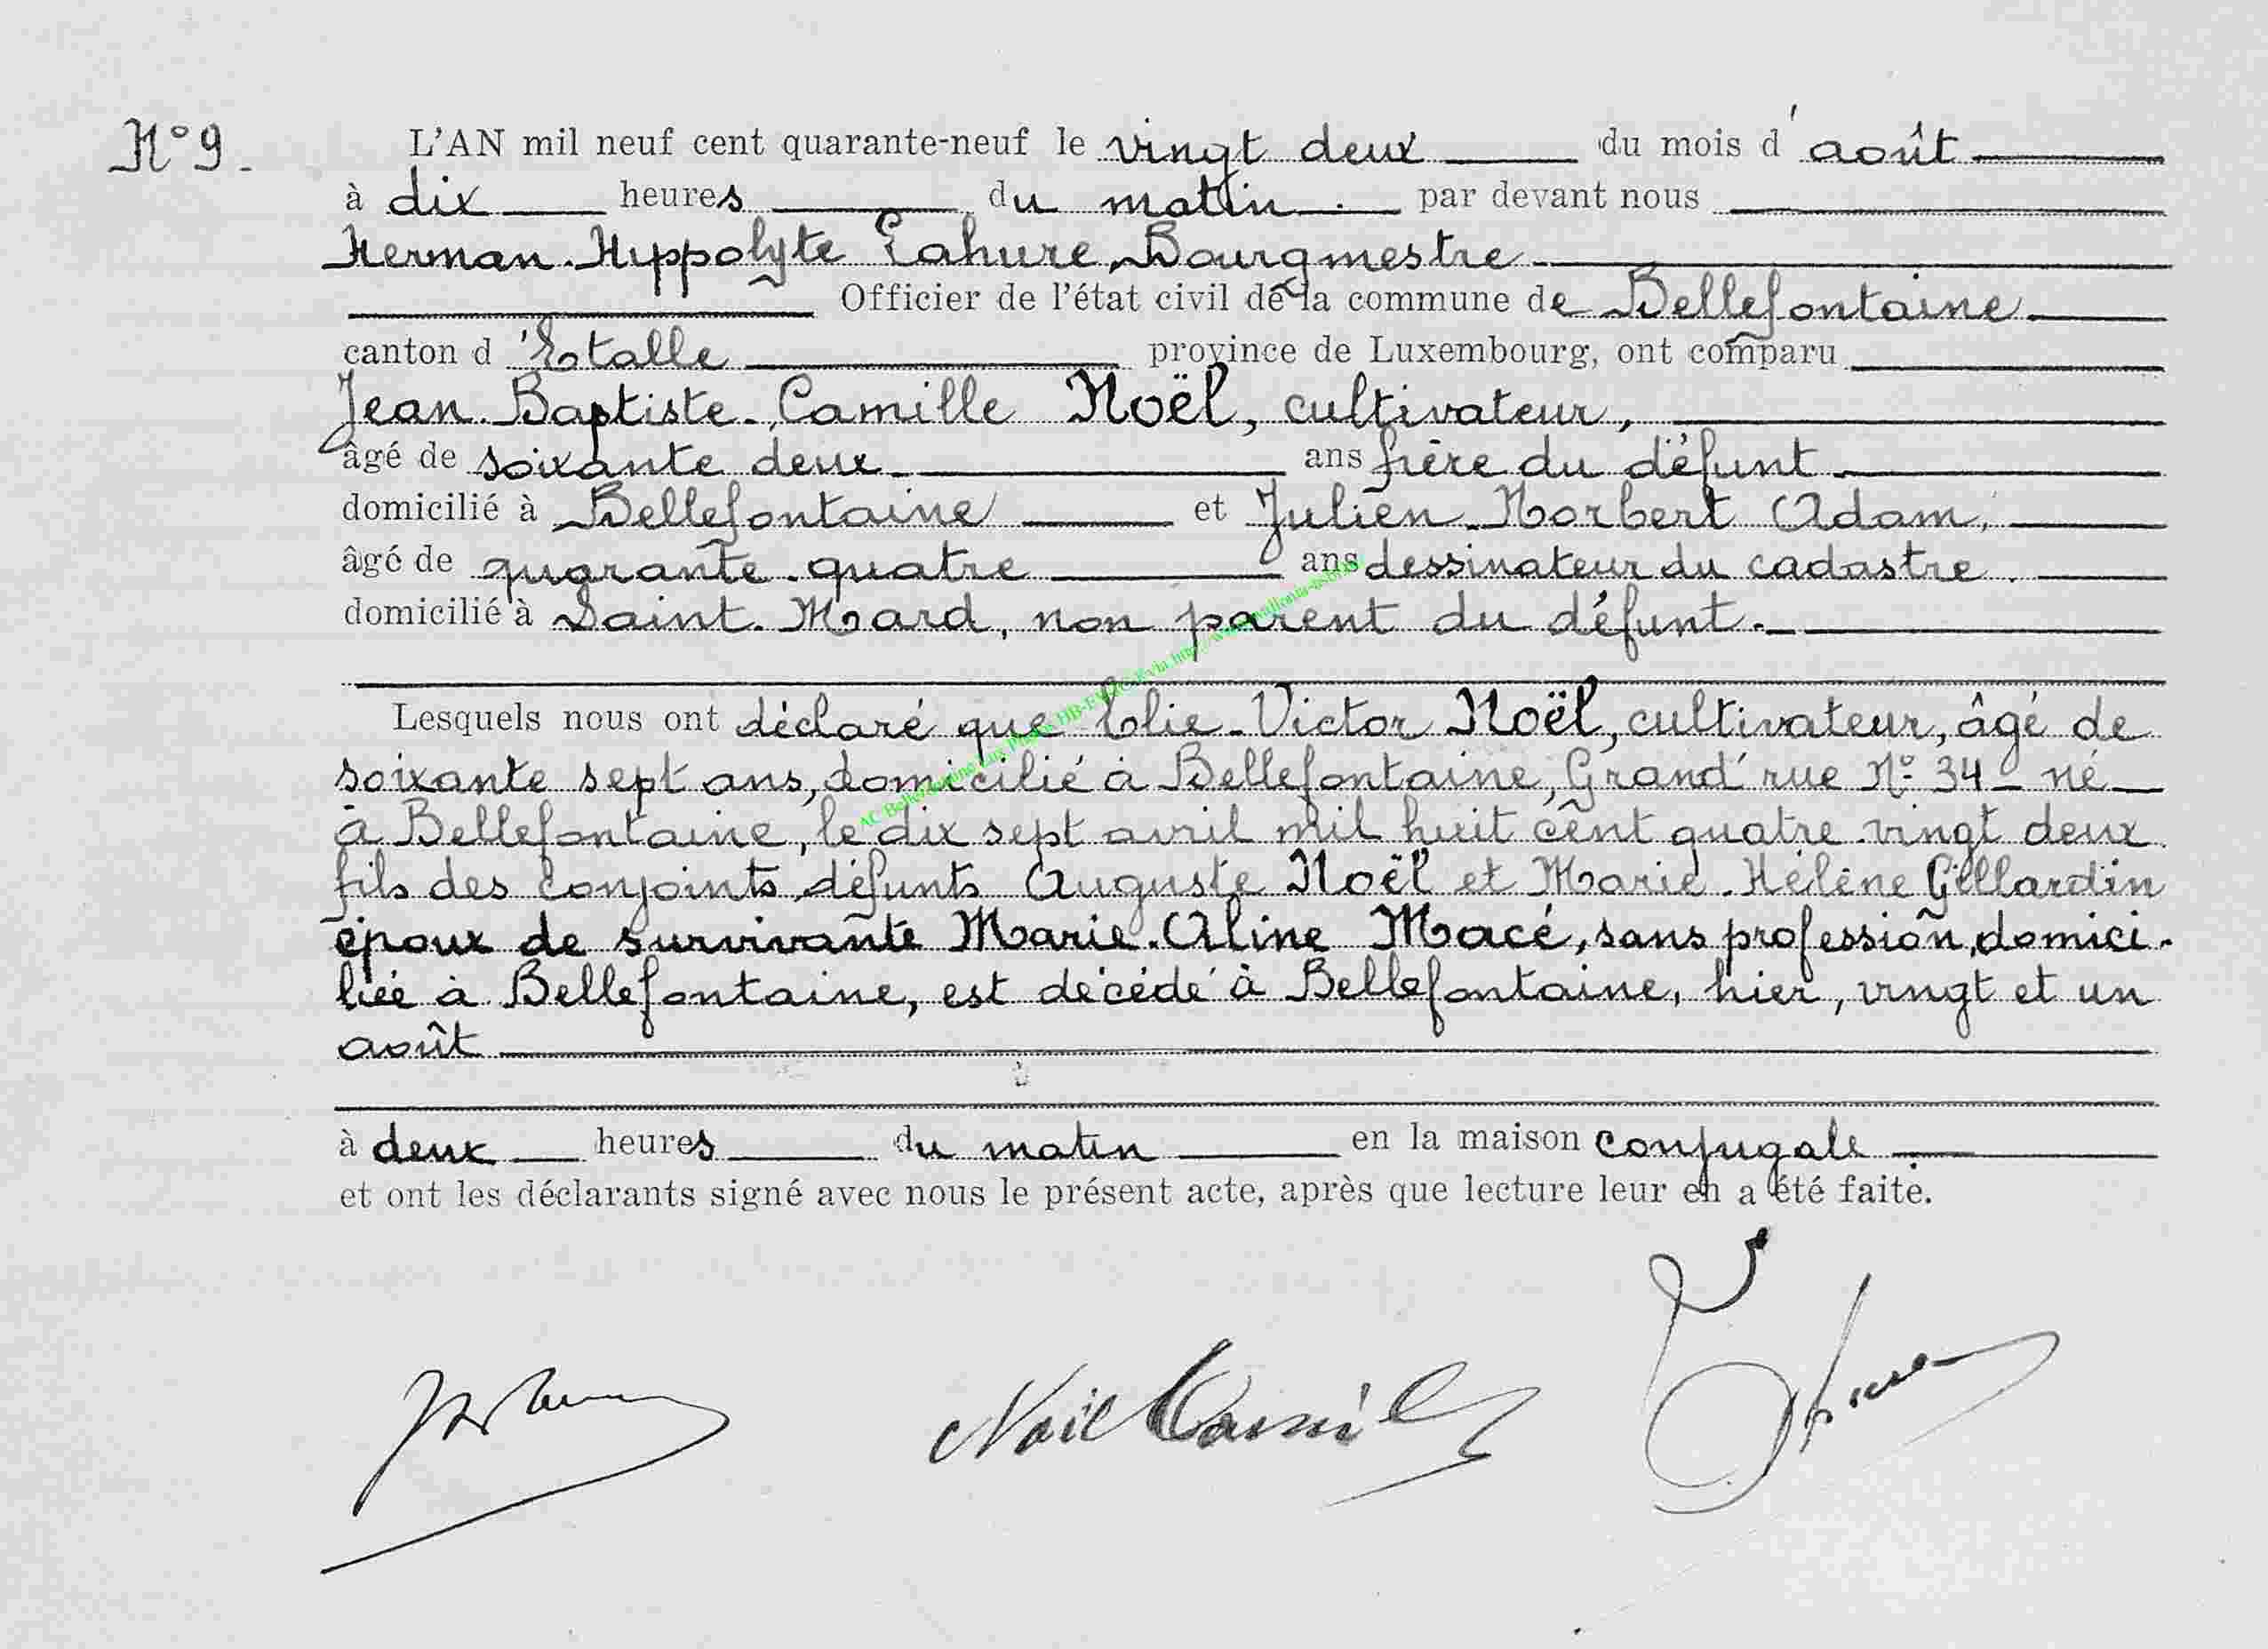 N° 9.
L'AN mil neuf cent quarante-neuf le vingt deux du mois d'août
à dix heures du matin. par devant nous
Herman-Hippolyte Lahure, Bourgmestre
Officier de l'état civil de la commune de Bellefontaine
canton d'Etalle province de Luxembourg, ont comparu
Jean-Baptiste-Camille Noël, cultivateur,
âgé de soixante deux ans frère du défunt
domicilié à Bellefontaine et Julien-Norbert Adam,
âgé de quarante-quatre ans dessinateur du cadastre.
domicilié à Saint-Mard, non parent du défunt.
Lesquels nous ont déclaré que Elie-Victor Noël, cultivateur, âgé de
soixante sept ans, domicilié à Bellefontaine, Grand'rue N° 34 - né
à Bellefontaine, le dix sept avril mil huit cent quatre-vingt deux
fils des conjoints défunts Auguste Noël et Marie-Hélène Gillardin
époux de survivante Marie-Aline Macé, sans profession, domici-
liée à Bellefontaine, est décédé à Bellefontaine, hier, vingt et un
août
à deux heures du matin en la maison conjugale
et ont les déclarants signé avec nous le présent acte, après que lecture leur en a été faite.
Noël Camille